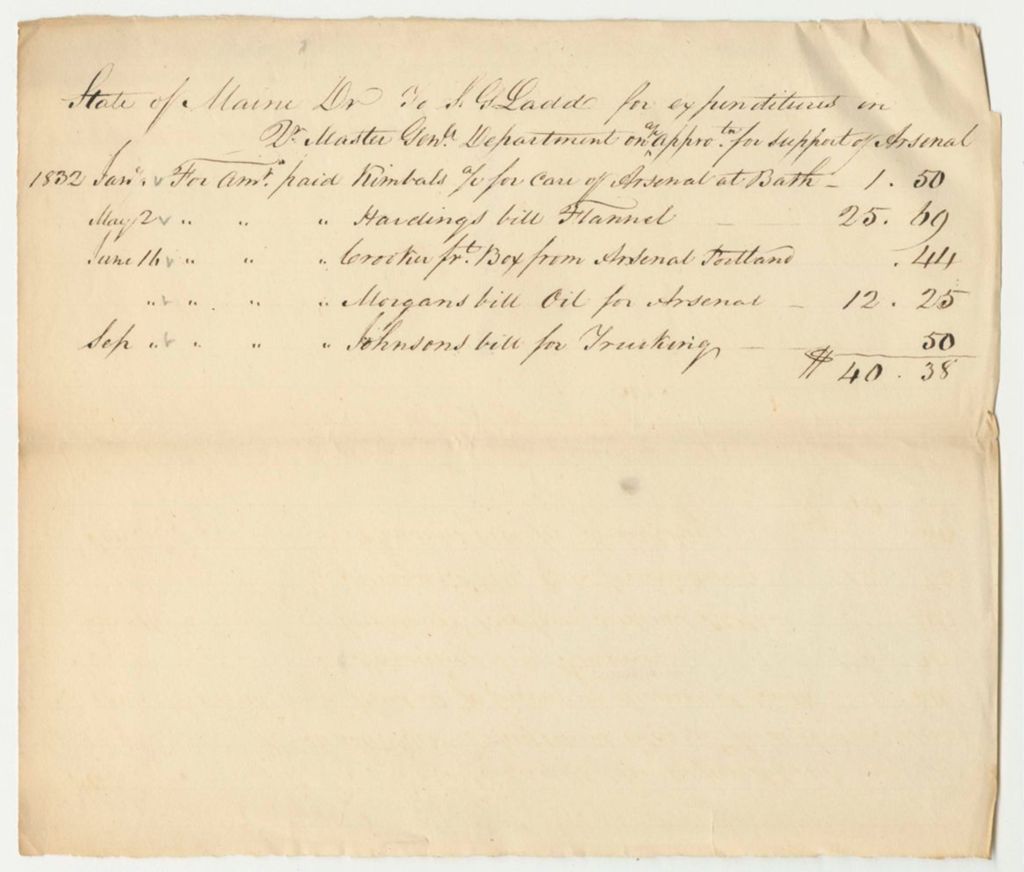 State of Maine Dr To S. G. Ladd for expenditures in
Qr Master Genls Department on a/c appro.tn for support of Arsenal
1832 Jany. For amt. paid Kimbals a/c for care of Arsenal at Bath - 1.50
May 2 " " " Hardings bill Flannel 25.69
June 16 " " " Crocker frt. Box from Arsenal Portland .44
" " " " Morgans bill Oil for Arsenal - 12.25
Sep " " " " Johnsons bill for Trucking 50
$ 40.38